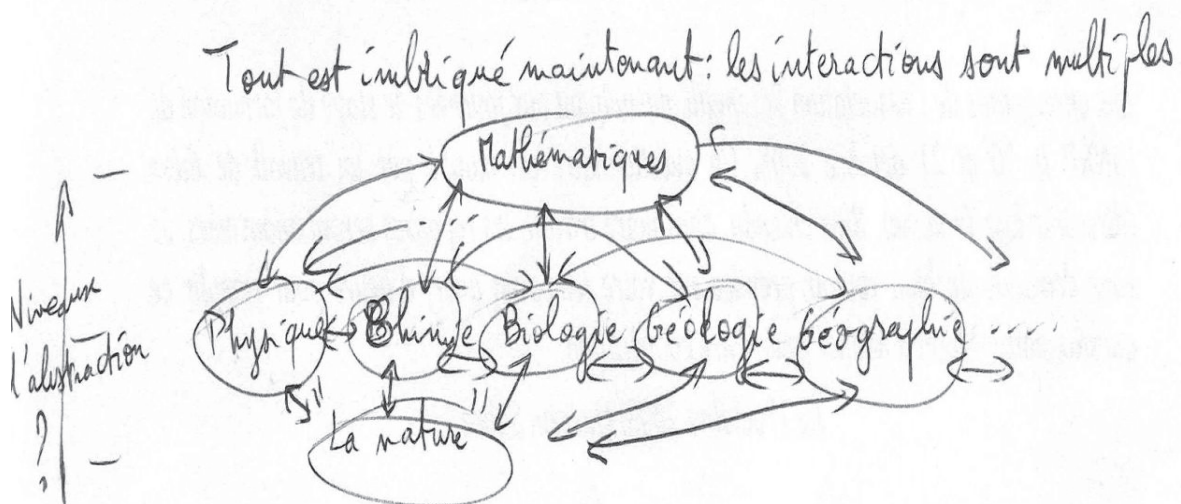 Tout est imbriqué maintenant : les interactions sont multiples
Mathématiques
Niveau
d'abstraction
?
Physique Chimie Biologie Géologie Géographie .....
La nature